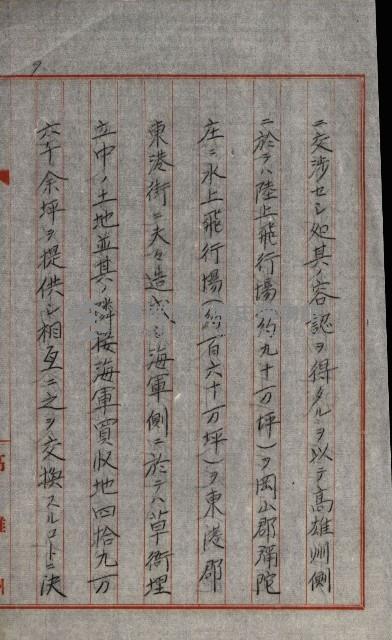 ニ交渉セシ処其ノ容認ヲ得タルヲ以テ高雄州側
ニ於テハ陸上飛行場(約九十万坪)ヲ岡山郡彌陀
庄ニ水上飛行場(約百六十万坪)ヲ東港郡
東港街ニ夫々造成シ海軍側ニ於テハ草衙埋
立中ノ土地並其ノ隣接海軍買収地四拾九万
六千余坪ヲ提供シ相互ニ之ヲ交換スルコトニ決
高雄州